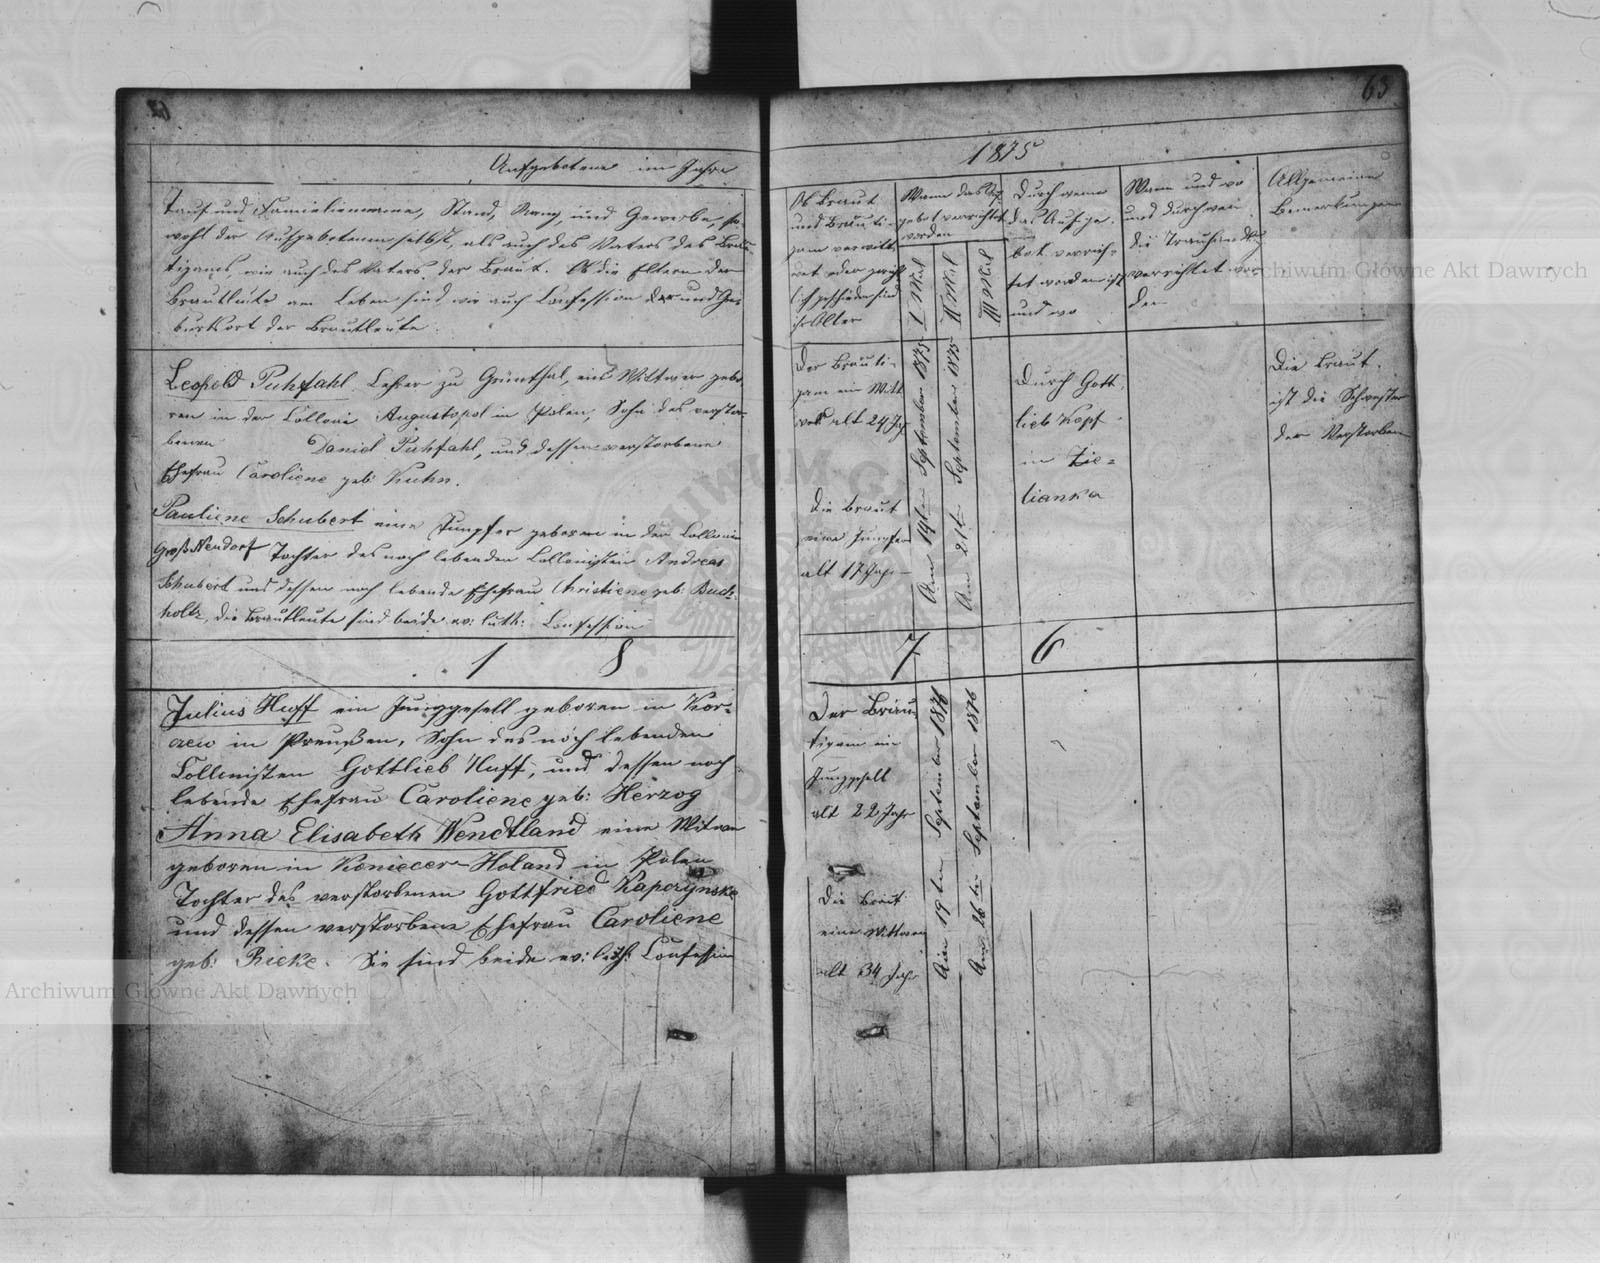 62
Aufgebotene im Jahre
Tauf und Familienname, Stand, Rang, und Gewerbe, so-
wohl der Aufgebotenen selbst, als auch des Vaters des Bräu-
tigams, wie auch des Vaters der Braut. Ob die Eltern der
Brautleute am Leben sind wie auch Confession der und Ge-
burtsort der Brautleute.
Leopold Puhfahl Lehrer zu Grünthal, ein Wittwer gebo-
ren in der Collonie Augustopol in Polen, Sohn des verstor-
benen Daniel Puhfahl, und dessen verstorbene
Ehefrau Caroliene geb: Kuhn.
Pauliene Schubert eine Jungfer geboren in der Collonie
Groß Neudorf Tochter des noch lebenden Collonisten Andreas
Schubert und dessen noch lebende Ehefrau Christiene geb: Buch-
holtz, die Brautleute sind beide ev: luth: Confession
1 8
Julius Huff ein Junggesell geboren in
in Preußen, Sohn des noch lebenden
Collonisten Gottlieb Huff, und dessen noch
lebende Ehefrau Caroliene geb: Herzog
Anna Elisabeth Wendtland eine Witwe
geboren in Holand in Polen
Tochter des verstorbenen Gottfried Kaperzynske
und dessen verstorbene Ehefrau Caroliene
geb: Rieke. Sie sind beide ev: luth: Confession
63
1875
Ob Braut
und Bräuti-
gam verwitt-
wet oder gericht-
lich geschieden sind
ihr Alter
Wann das Auf-
gebot verrichtet
worden
I Mal
II Mal
III Mal
Durch wem
das Aufge-
bot verrich-
tet worden ist
und wo
Wann und wo
und durch wen
die Trauhandlg
verrichtet wor-
den
Allgemeine
Bemerkungen
Der Bräuti-
gam ein Witt
wer alt 24 Jahr
Die Braut
eine Jungfer
alt 17 Jahr
Am 14ten September 1875
Am 21ten September 1875
Durch Gott
lieb Kopf
in Zie-
lianka
Die Braut
ist die Schwester
der Verstorbenen
7 6
Der Bräu-
tigam ein
Junggesell
alt 22 Jahr
Die Braut
eine Wittwe
alt 34 Jahr
Am 19ten September 1876
Am 26ten September 1876
Archiwum Główne Akt Dawnych
Archiwum Główne Akt Dawnych